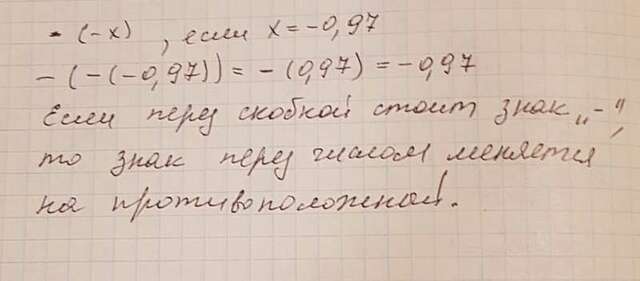 - (-x) , если x = -0,97
- (-(-0,97)) = - (0,97) = -0,97
Если перед скобкой стоит знак „-“,
то знак перед числом меняется
на противоположной.